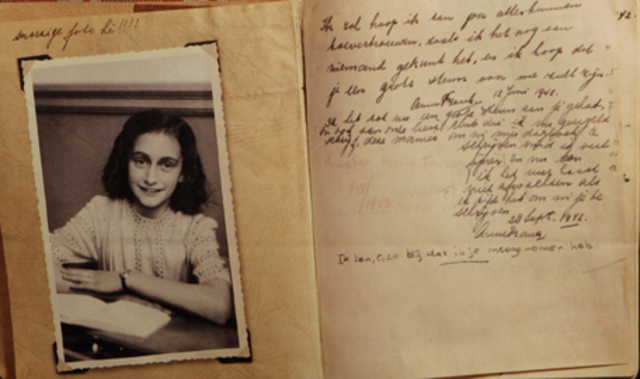 snoezige foto hé!!!!
Ik zal hoop ik aan jou alles kunnen
toevertrouwen, zoals ik het nog aan
niemand gekund heb, en ik hoop dat
je een grote steun voor me zult zijn.
Anne Frank. 12 Juni 1942.
Ik heb tot nu een grote steun aan je gehad,
en ook aan onze club die ik nu geregeld
schrijf, deze manier om in mijn dagboek te
schrijven vind ik veel
fijner en nu kan
ik het uur haast
niet afwachten als
ik tijd heb om in je te
schrijven.
28 Sept. 1942.
Anne Frank.
Ik ben, o, zo blij dat ik je meegenomen heb
42.